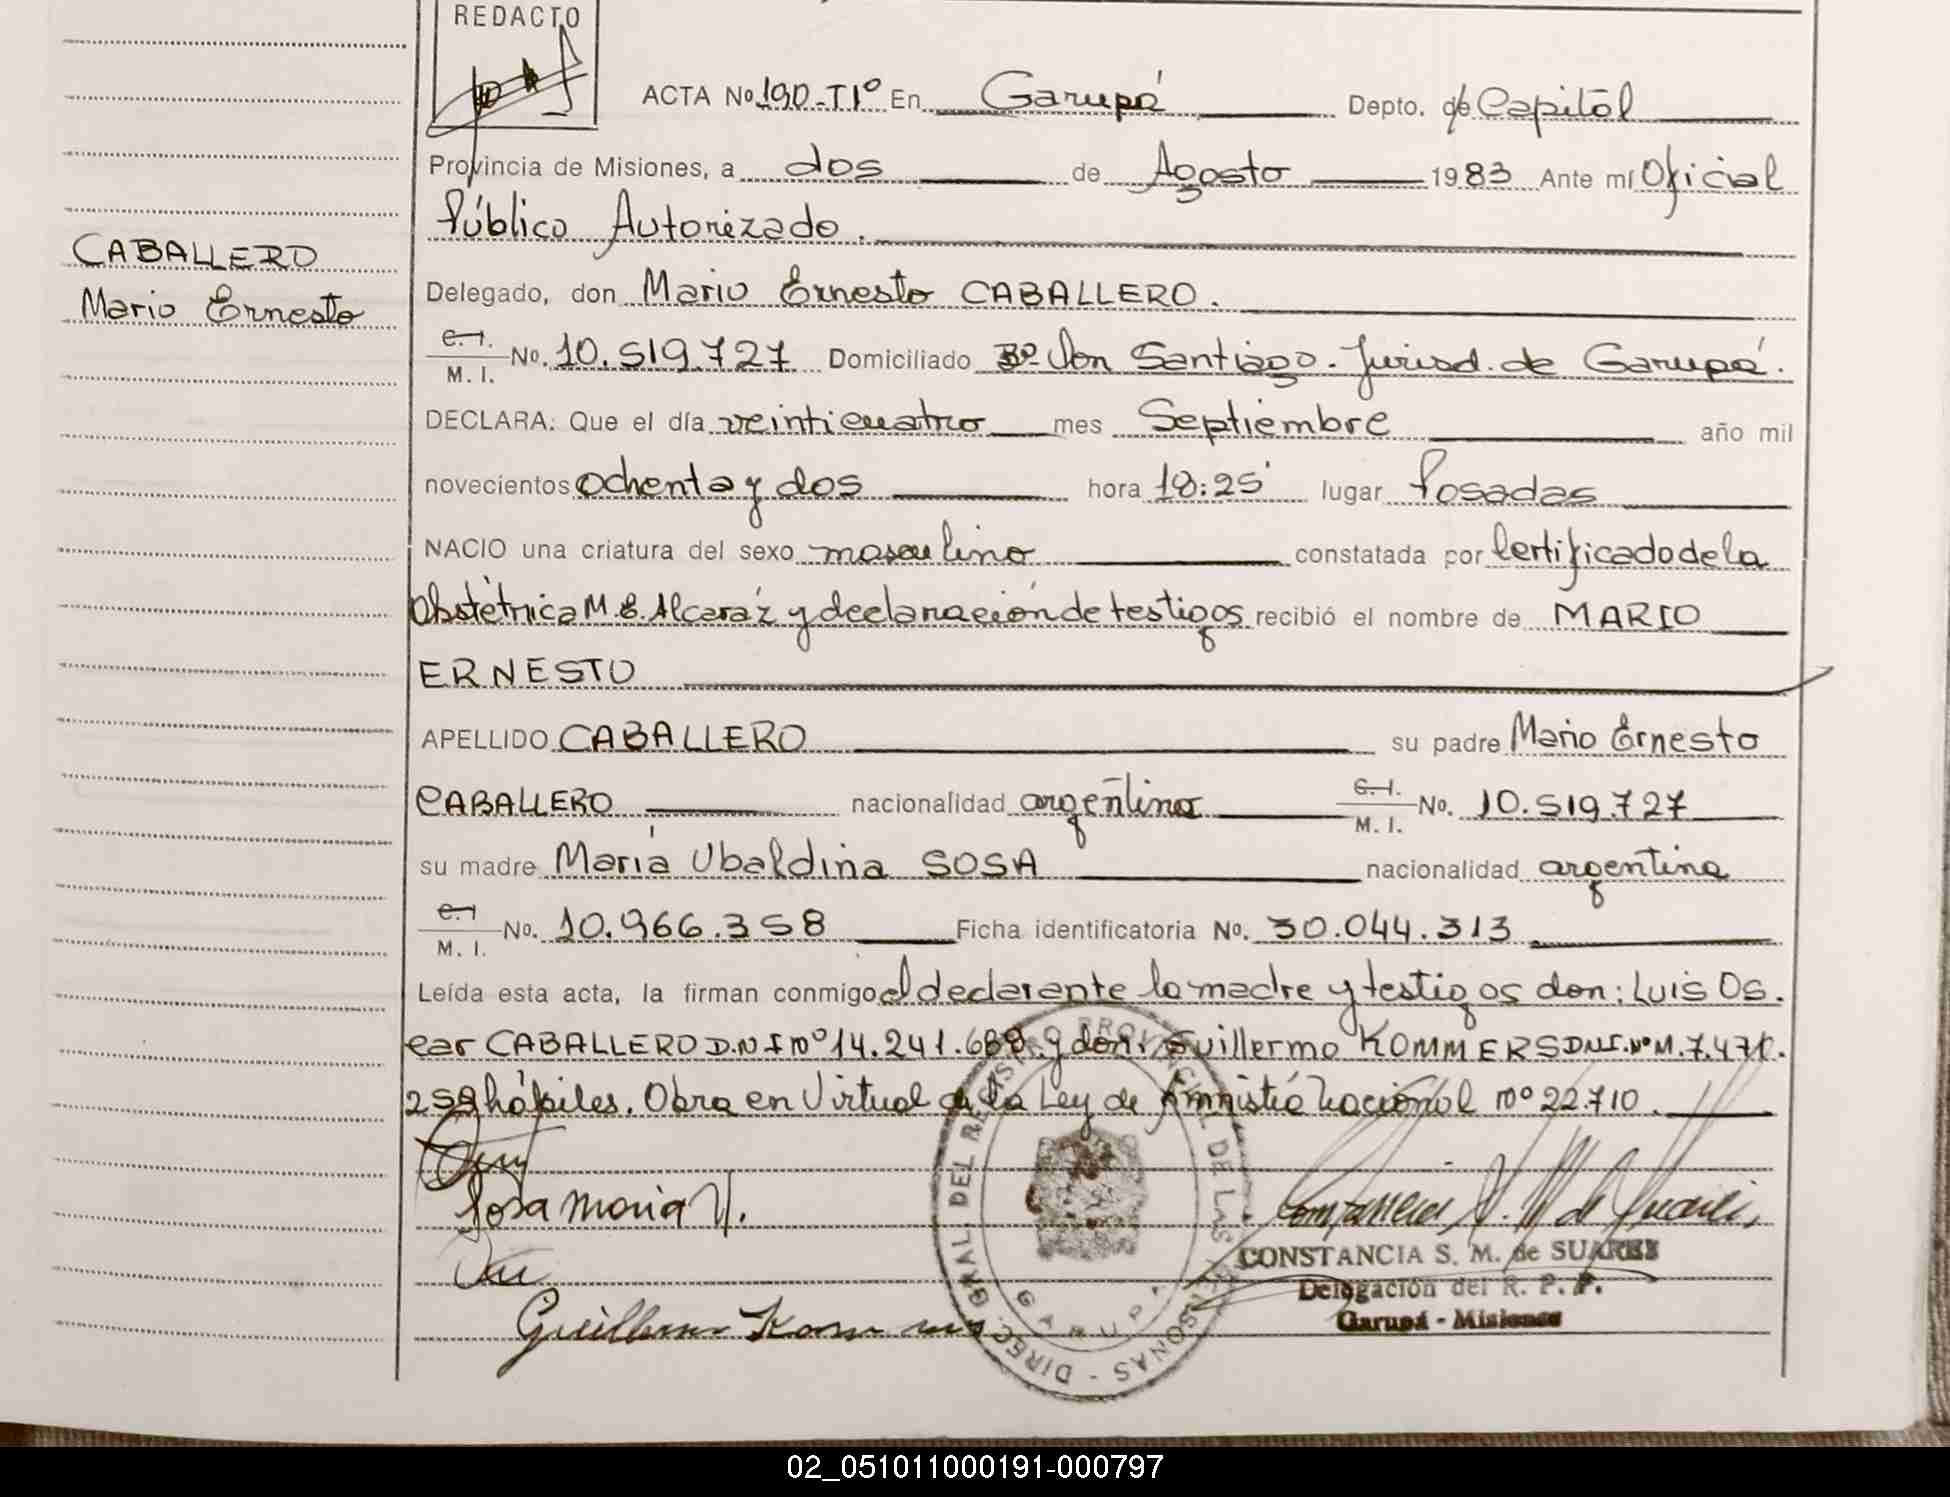 REDACTO
ACTA No. 190-TIº En Garupá Depto. de Capital
Provincia de Misiones, a dos de Agosto 1983 Ante mí Oficial
Público Autorizado.
CABALLERO
Mario Ernesto
Delegado, don Mario Ernesto CABALLERO.
C.I. M.I. No. 10.519.727 Domiciliado Bº Don Santiago. Jurisd. de Garupá.
DECLARA: Que el día veinticuatro mes Septiembre año mil
novecientos ochenta y dos hora 18:25' lugar Posadas
NACIO una criatura del sexo masculino constatada por Certificado de la
Obstétrica M.E. Alcaráz y declaración de testigos recibió el nombre de MARIO
ERNESTO
APELLIDO CABALLERO su padre Mario Ernesto
CABALLERO nacionalidad argentino C.I. M.I. No. 10.519.727
su madre María Ubaldina SOSA nacionalidad argentina
C.I. M.I. No. 10.966.358 Ficha identificatoria No. 30.044.313
Leída esta acta, la firman conmigo el declarante la madre y testigos don: Luis Os.
car CABALLERO D.N.I nº 14.241.688 y don: Guillermo KOMMERS DNI. Nº M. 7.471.
259 hábiles. Obra en Virtual de la Ley de Amnistía Nacional nº 22.710.
Sosa Maria U.
Guillermo Kommers
DIREC. GRAL. DEL REGISTRO PROVINCIAL DE LAS PERSONAS -
GARUPA
CONSTANCIA S. M. de SUAREZ
Delegación del R. P. P.
Garupá - Misiones
02_051011000191-000797